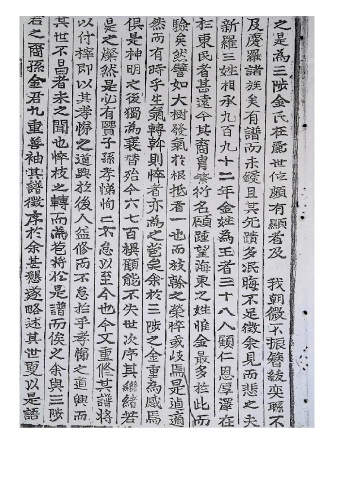 之是為三陟金氏在麗世位頗有顯者及　我朝微不振簪紱奕聯不
及慶羅諸族矣有譜而未鋟且其死蹟多泯晦不足徵余見而悲之夫
新羅三姓相承九百九十二年金姓為王者三十八人顧仁恩厚澤在
於東民者甚遠今其裔胄繁衍名顯踵望海東之姓惟金最多於此而
驗矣然譬如大樹發氣於根柢者一也而枝幹之榮悴或歧焉是迺適
然而有時乎生氣轉斡則悴者亦為之密矣余於三陟之金重為感焉
俱是神明之後獨為衰替殆今六七百禩顧能不失世次序其繼緒若
是之燦然是必有賢子孫孝悌恂恂不怠以至今也今又重修其譜將
以付梓即以其孝悌之道興於後人益修而不怠抬乎孝悌之道興而
其世不昌者未之聞也悴枝之轉而為苞將於是譜而俟之余與三陟
君之裔孫金君九重善袖其譜徵序於余甚懇遂略述其世夏以是語